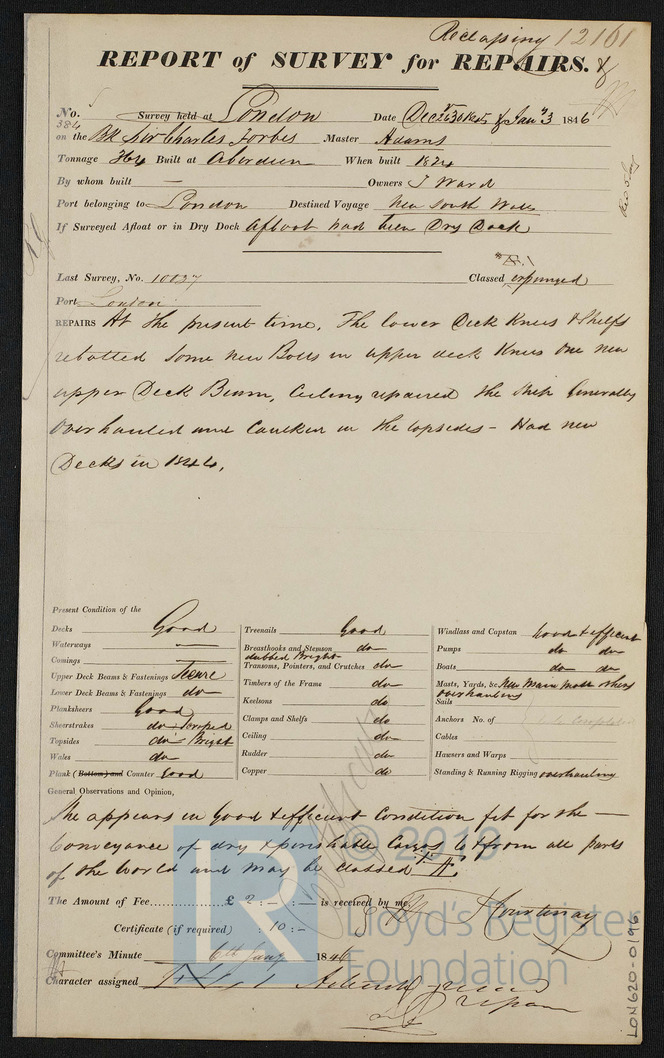 Reclassing 12161
REPORT of SURVEY for REPAIRS. &
No. 384 Survey held at London Date Dec 26 30 1845 & Jany 3 1846
on the Bk Sir Charles Forbes Master Adams
Tonnage 364 Built at Aberdeen When built 1824
By whom built — Owners J Ward
Port belonging to London Destined Voyage New South Wales
If Surveyed Afloat or in Dry Dock Afloat had been Dry Dock
Last Survey, No. 10037 Classed *Æ.1 expunged
Port London
REPAIRS At the present time. The lower Deck Knees & Shelfs
rebolted some new Bolts in upper deck Knees one new
upper Deck Beam, Ceiling repaired the ship Generally
Overhauled and Caulked in the topsides - Had new
Decks in 1844.
Present Condition of the
Decks Good
Waterways —
Comings —
Upper Deck Beams & Fastenings Secure
Lower Deck Beams & Fastenings do
Planksheers Good
Sheerstrakes do Scraped
Topsides do Bright
Wales do
Plank (Bottom) and Counter Good
Treenails Good
Breasthooks and Stemson do
dubbed Bright
Transoms, Pointers, and Crutches do
Timbers of the Frame do
Keelsons do
Clamps and Shelfs do
Ceiling do
Rudder do
Copper do
Windlass and Capstan Good & efficient
Pumps do do
Boats do do
Masts, Yards, &c New Main Mast others
overhauling
Sails
Anchors No. of
Cables
Hawsers and Warps
Standing & Running Rigging overhauling
General Observations and Opinion,
She appears in Good & efficient Condition fit for the —
Conveyance of dry & perishable Cargos to & from all parts
of the World and may be classed *Æ
The Amount of Fee £ 2 : - : - is received by me, Courtenay
Certificate (if required) : 10 : -
Committee's Minute 6th Jany 1846
Character assigned
Certificate
© 2019
Lloyd's Register
Foundation
LON620-0196